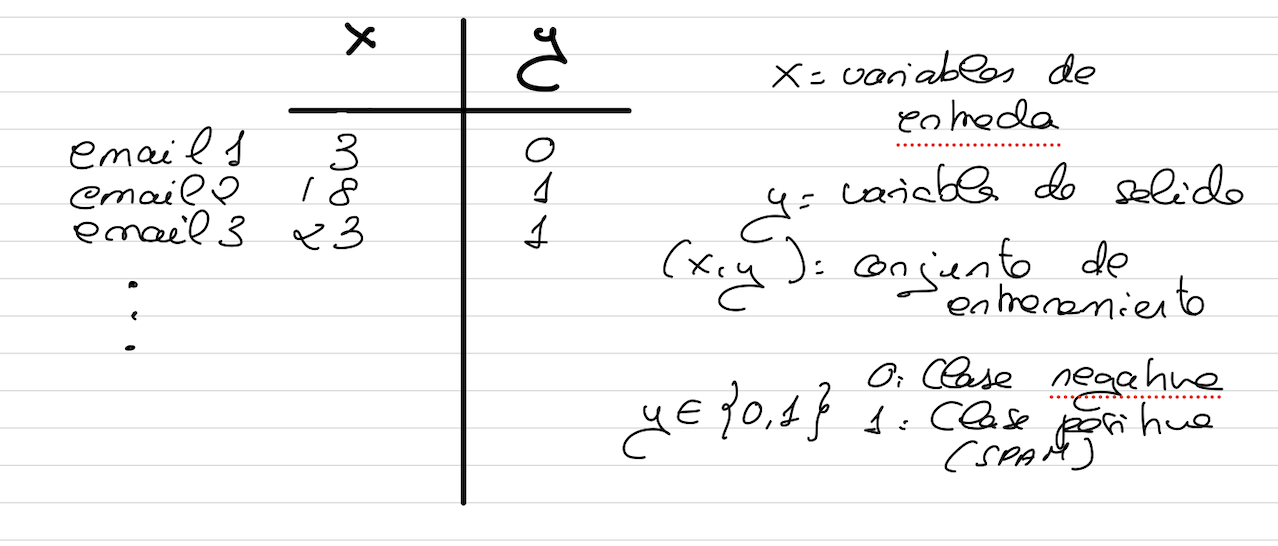 x y
email 1 3 0
email 2 18 1
email 3 23 1
x = variables de
entrada
y = variables de salida
(x, y) = conjunto de
entrenamiento
y ∈ {0,1} 0: Clase negativa
1: Clase positiva
(SPAM)